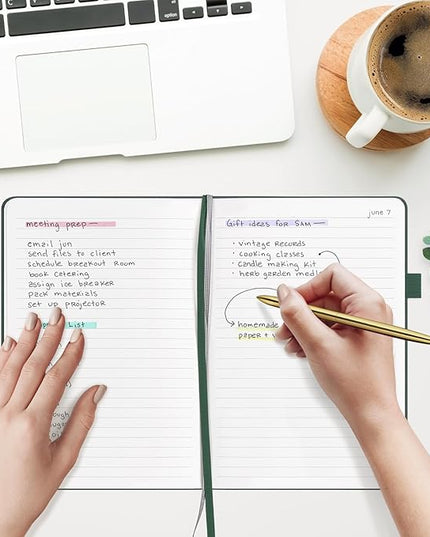 option
meeting prep —
email jun
send files to client
schedule breakout room
book catering
assign ice breaker
pack materials
set up projector
List
june 7
Gift ideas for SAM —
• vintage records
• cooking classes
• candle making kit
• herb garden
homemade
paper +